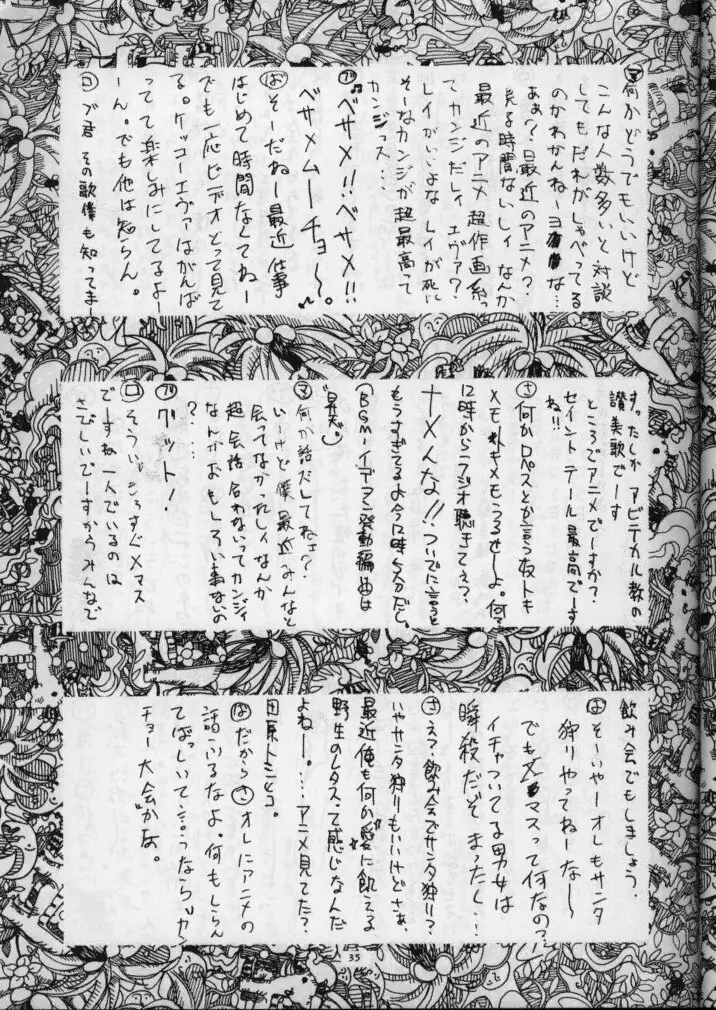 ㋮何かどうでもいいけど
こんな人数多いと対談
してもだれがしゃべってる
のかわかんねーヨな…
あぁ?最近のアニメ?
見る時間ないしィなんか
最近のアニメ超作画系
てカンジだしィエヴァ?
レイがいいよなレイが死に
そーなカンジが超最高って
カンジっス…
ベサメ!!ベサメ!!
ベサメムーチョ〜。
㋩そーだねー最近仕事
はじめて時間なくてねー
でも一応ビデオとって見て
る。ケッコーエヴァはがんば
ってて楽しみにしてるよー
ーん。でも他は知らん。
㋺ブ君その歌僕も知ってまー
す。たしかアビテカル教の
讃美歌でーす
ところでアニメでーすか?
セイントテール最高でーす
ね!!
㋚何かロペスとか言う奴トキ
メモトキメモうるせーよ。何?
12時からラジオ聴きてぇ?
ナメんな!!ついでに言うと
もうすぎてるよ今12時53分だし。
(BGM・イデオン発動編曲は
"昇天")
㋮何か話だしてねェ?
いーけど僕最近みんなと
会ってなかったしィなんか
超会話合わないってカンジィ
なんかおもしろい事ないの
?……
グット!
㋺そういえもうすぐXマス
ですね一人でいるのは
さびしいでーすからみんなで
飲み会でもしましょう。
㋩そーいやーオレもサンタ
狩りやってねーな〜
でもXマスって何なの?
イチャついてる男女は
瞬殺だぞまったく…!
㋚え?飲み会でサンタ狩り?
いやサンタ狩りもいいけどさぁ、
最近俺も何か愛に飢える
野生のレタスって感じなんだ
よねー。…アニメ見てた?
田原トシヒコ。
㋩だから㋚オレにアニメの
話ふるなよ。何もしらん
てばっしいて…っならリカ
チョー大会かあ。
35